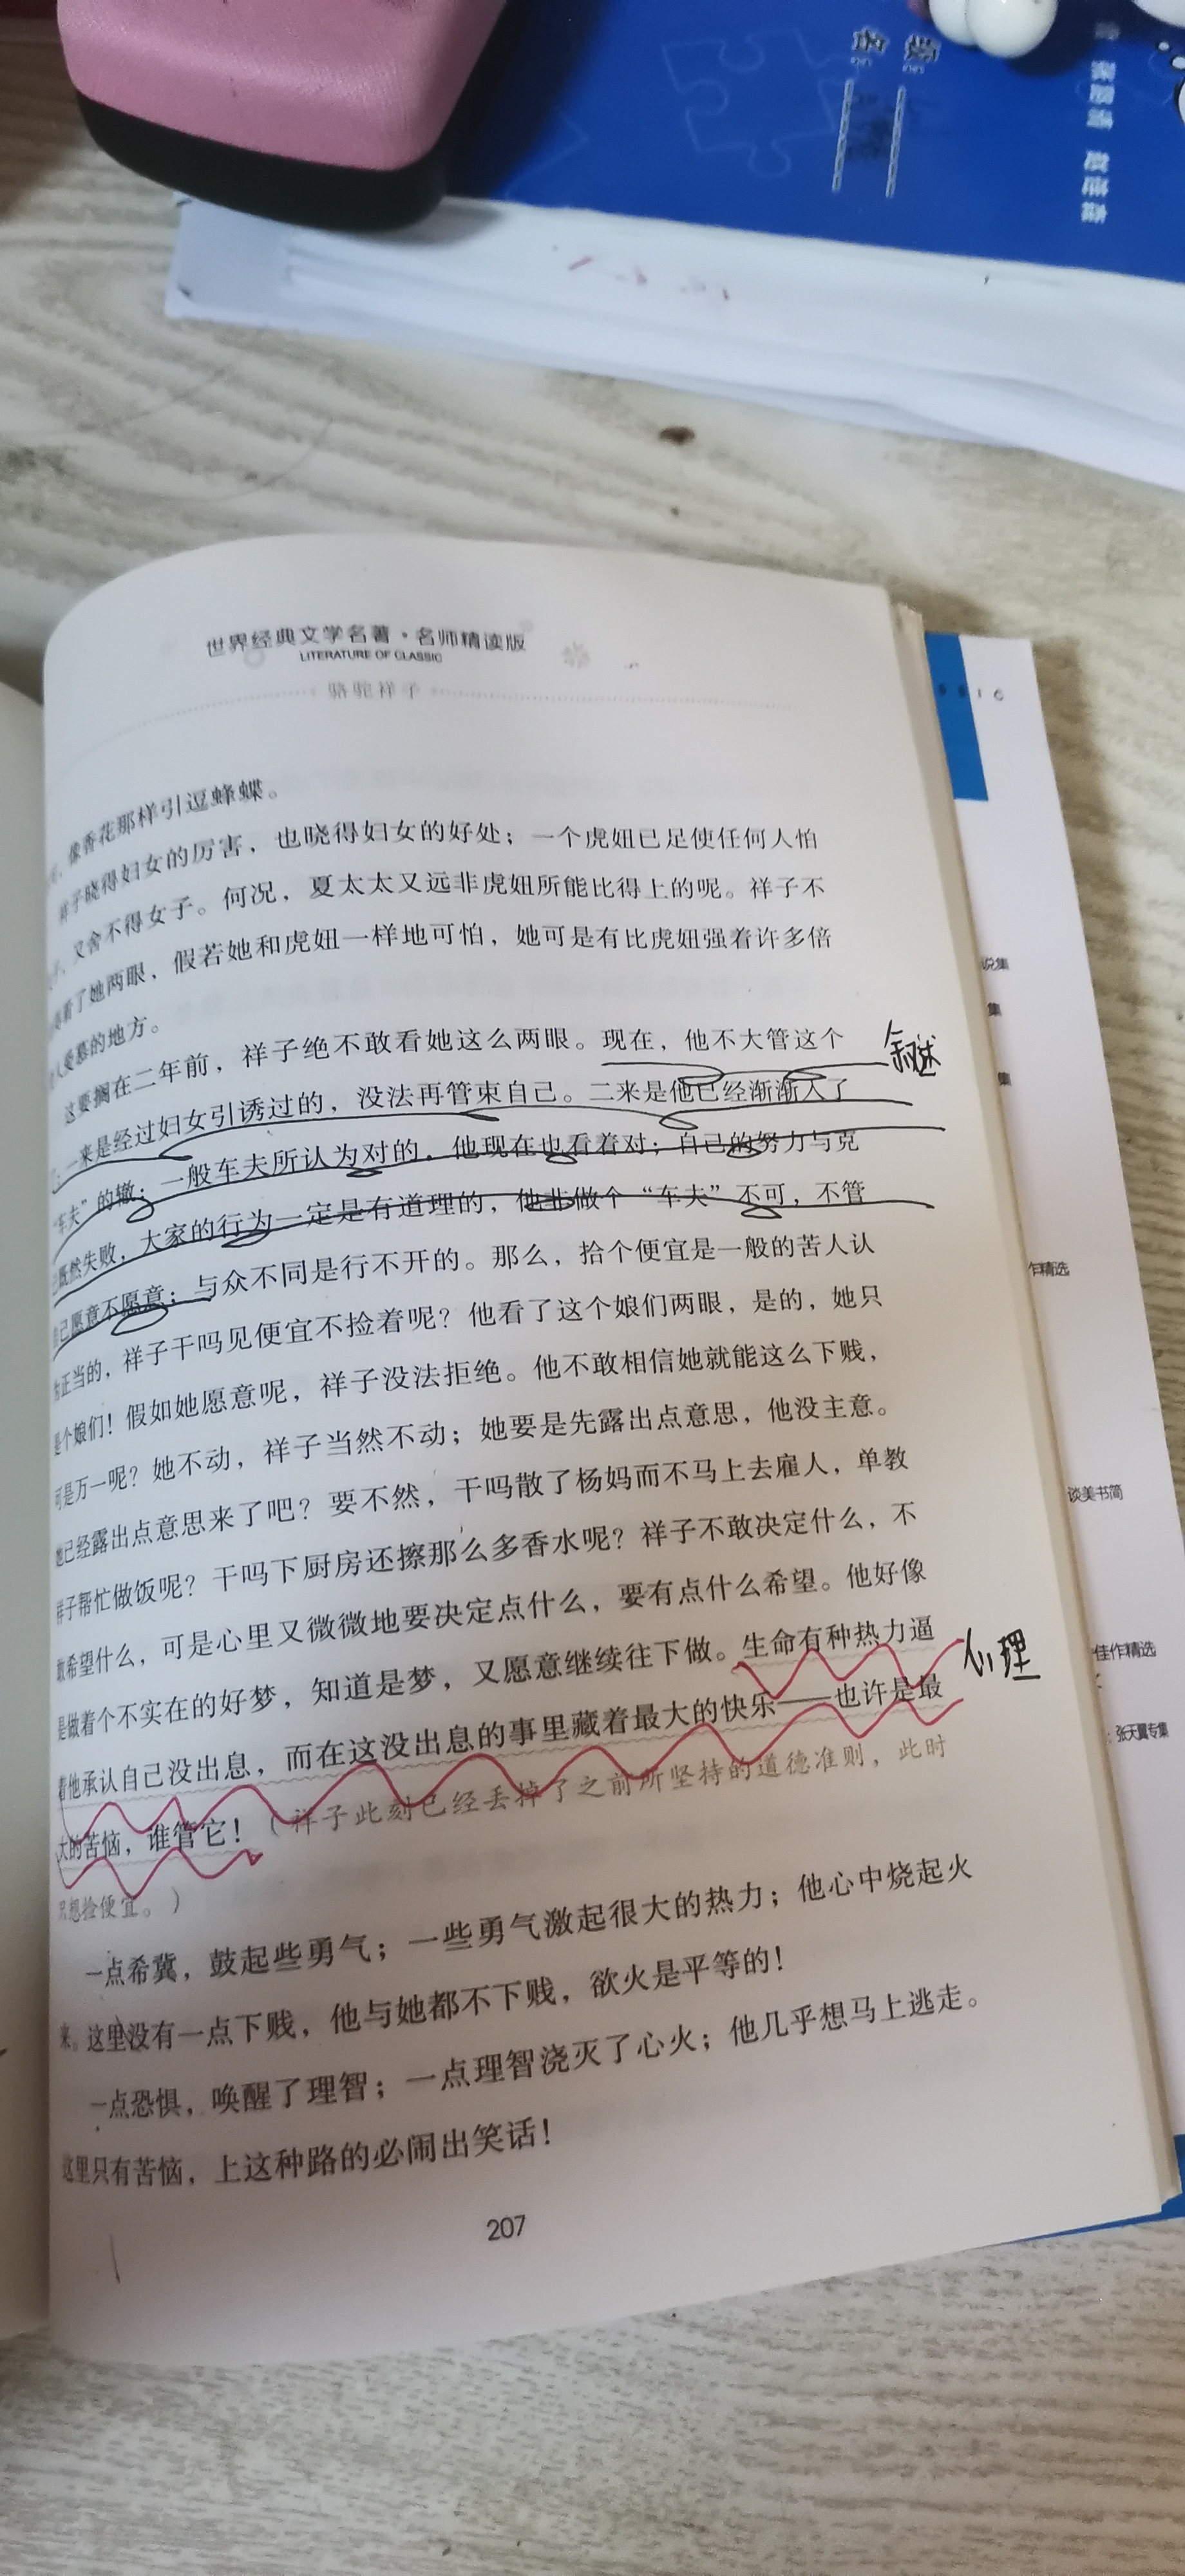 级：
名：
世界经典文学名著·名师精读版
LITERATURE OF CLASSIC
骆驼祥子
，像香花那样引逗蜂蝶。
祥子晓得妇女的厉害，也晓得妇女的好处；一个虎妞已足使任何人怕
，又舍不得女子。何况，夏太太又远非虎妞所能比得上的呢。祥子不
看了她两眼，假若她和虎妞一样地可怕，她可是有比虎妞强着许多倍
人爱慕的地方。
这要搁在二年前，祥子绝不敢看她这么两眼。现在，他不大管这个
叙述
：一来是经过妇女引诱过的，没法再管束自己。二来是他已经渐渐入了
“车夫”的辙：一般车夫所认为对的，他现在也看着对；自己的努力与克
己既然失败，大家的行为一定是有道理的，他非做个“车夫”不可，不管
自己愿意不愿意；与众不同是行不开的。那么，拾个便宜是一般的苦人认
为正当的，祥子干吗见便宜不捡着呢？他看了这个娘们两眼，是的，她只
是个娘们！假如她愿意呢，祥子没法拒绝。他不敢相信她就能这么下贱，
可是万一呢？她不动，祥子当然不动；她要是先露出点意思，他没主意。
她已经露出点意思来了吧？要不然，干吗散了杨妈而不马上去雇人，单教
祥子帮忙做饭呢？干吗下厨房还擦那么多香水呢？祥子不敢决定什么，不
敢希望什么，可是心里又微微地要决定点什么，要有点什么希望。他好像
是做着个不实在的好梦，知道是梦，又愿意继续往下做。生命有种热力逼
心理
着他承认自己没出息，而在这没出息的事里藏着最大的快乐——也许是最
大的苦恼，谁管它！（祥子此刻已经丢掉了之前所坚持的道德准则，此时
只想捡便宜。）
一点希冀，鼓起些勇气；一些勇气激起很大的热力；他心中烧起火
来。这里没有一点下贱，他与她都不下贱，欲火是平等的！
一点恐惧，唤醒了理智；一点理智浇灭了心火；他几乎想马上逃走。
这里只有苦恼，上这种路的必闹出笑话！
207
说集
集
集
作精选
谈美书简
佳作精选
：张天翼专集